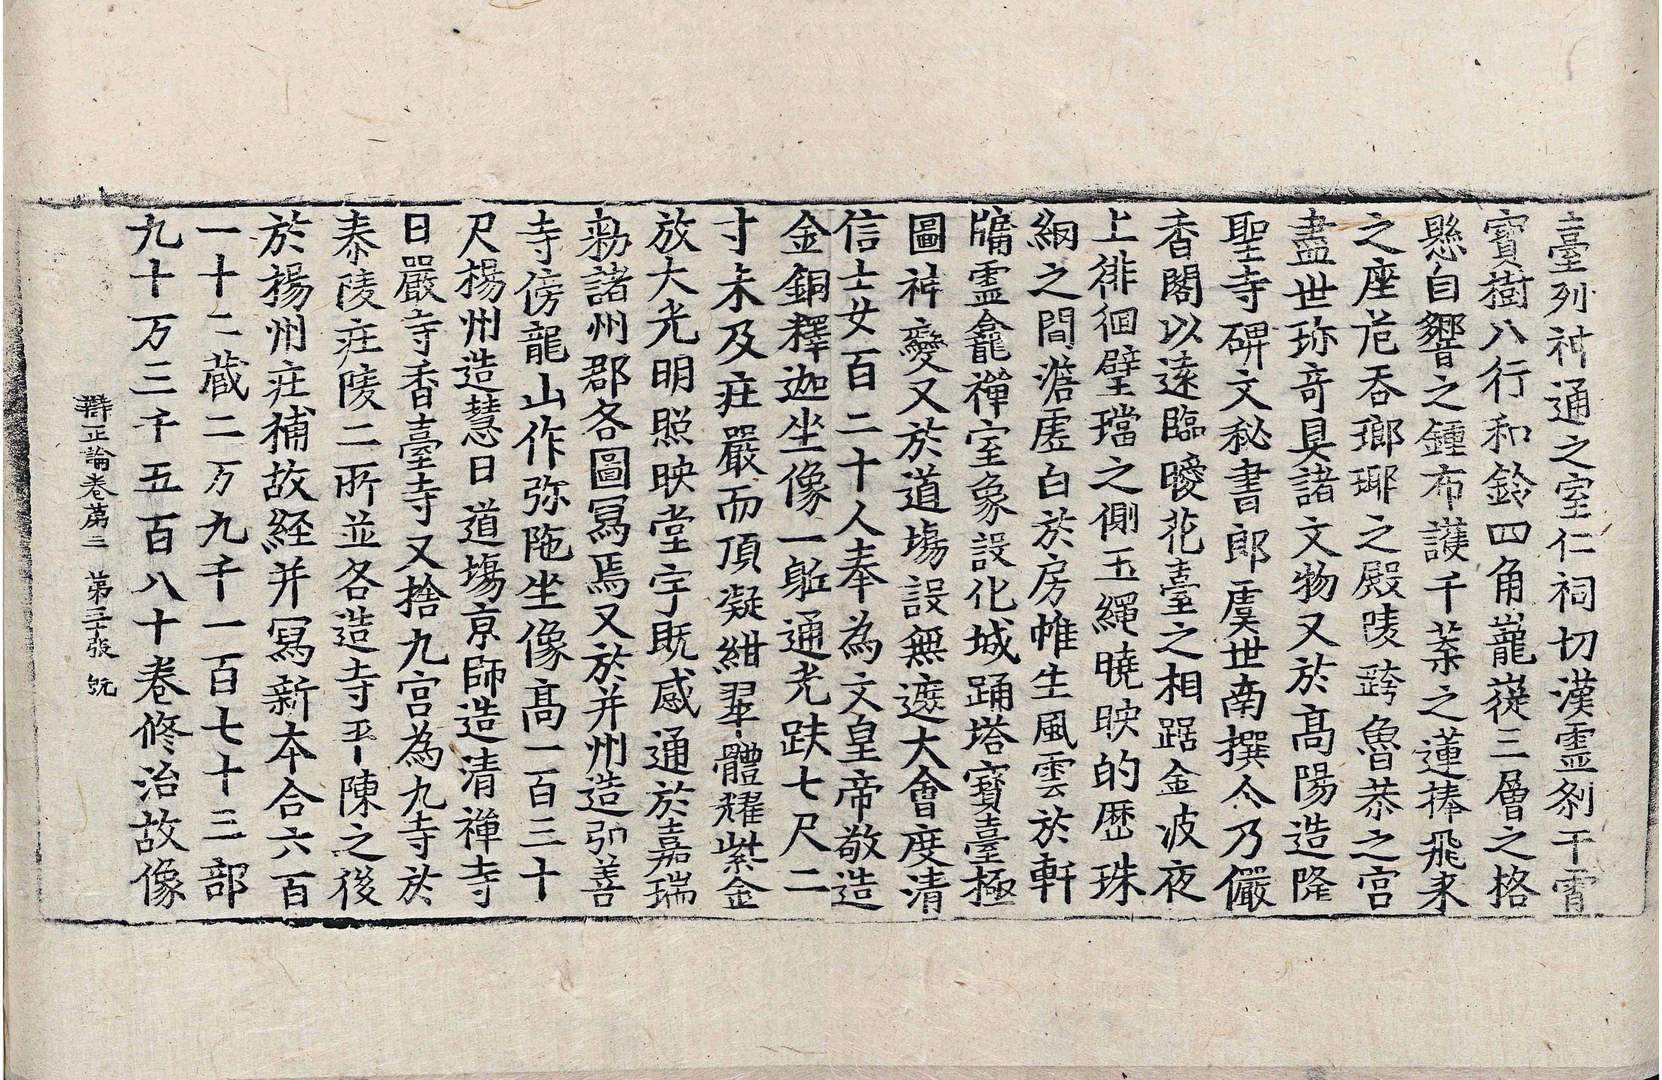 臺列神通之室仁祠切漢靈刹干霄
寳樹八行和鈴四角巃嵸三層之格
懸自響之鍾布護千葉之蓮捧飛来
之座芘吞瑯瑘之殿陵跨魯恭之宮
盡世珎竒具諸文物又於髙陽造隆
聖寺碑文秘書郎虞世南撰今乃儼
香閣以遠臨曖花臺之相踞金波夜
上徘徊璧璫之側玉繩曉映的歴珠
網之間澹虗白於房帷生風雲於軒
牖靈龕禪室象設化城踊塔寳臺極
圖神變又於道塲設無遮大會度清
信士女百二十人奉為文皇帝敬造
金銅釋迦坐像一軀通光趺七尺二
寸未及疘嚴而頂凝紺翠體耀紫金
放大光明照映堂宇既感通於嘉瑞
勑諸州郡各圖冩焉又於并州造弘善
寺傍龍山作弥陁坐像髙一百三十
尺揚州造慧日道塲亰師造清禅寺
日嚴寺香臺寺又捨九宫為九寺於
泰陵疘陵二所並各造寺平陳之後
於揚州疘補故経并冩新本合六百
一十二蔵二万九千一百七十三部
九十万三千五百八十卷修治故像
辯正論卷苐三 第三十張 㲋